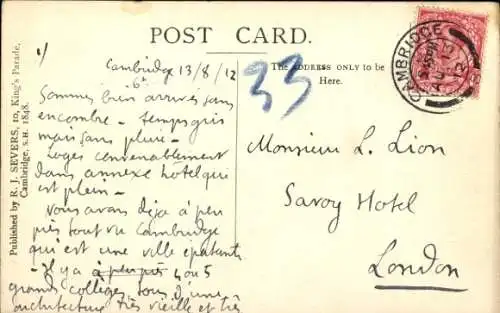 POST CARD.
The ADDRESS ONLY TO BE
Here.
Published by R. J. SEVERS, 10, King's Parade,
Cambridge, S.H. 1848.
CAMBRIDGE
1/
33
Cambridge 13/8/12
Sommes bien arrivés sans
encombre - temps gris
mais sans pluie -
Loges convenablement
dans annexe hôtel qui
est plein -
Vous avons déja à peu
près tout vu Cambridge
qui est une ville épatante
- Il y a à peu près 4 ou 5
grands collèges tous d'une
architecture très vieille et très
Monsieur L. Lion
Savoy Hotel
London